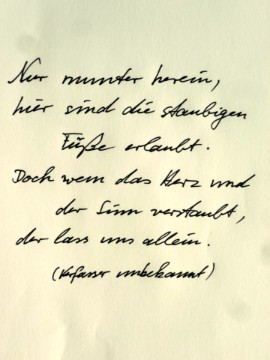 Nur munter herein,
hier sind die staubigen
Füße erlaubt.
Doch wem das Herz und
der Sinn verstaubt,
der lass uns allein.
(Verfasser unbekannt)